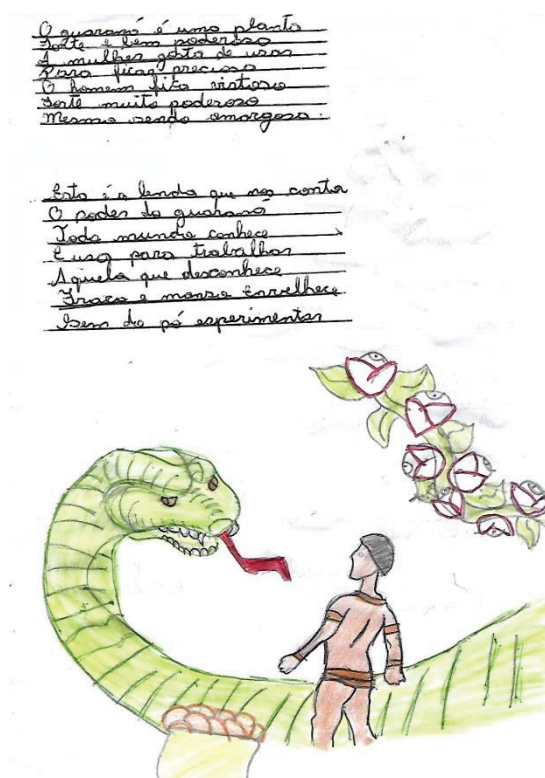 O guaraná é uma planta
Forte e bem poderosa
A mulher gosta de usar
Para ficar preciosa
O homem fica virtuoso
Forte muito poderoso
Mesmo sendo amargoso.
Esta é a lenda que nos conta
O poder do guaraná
Todo mundo conhece
E usa para trabalhar
Aquele que desconhece
Fraco e manso Envelhece
Sem do pó esperimentar